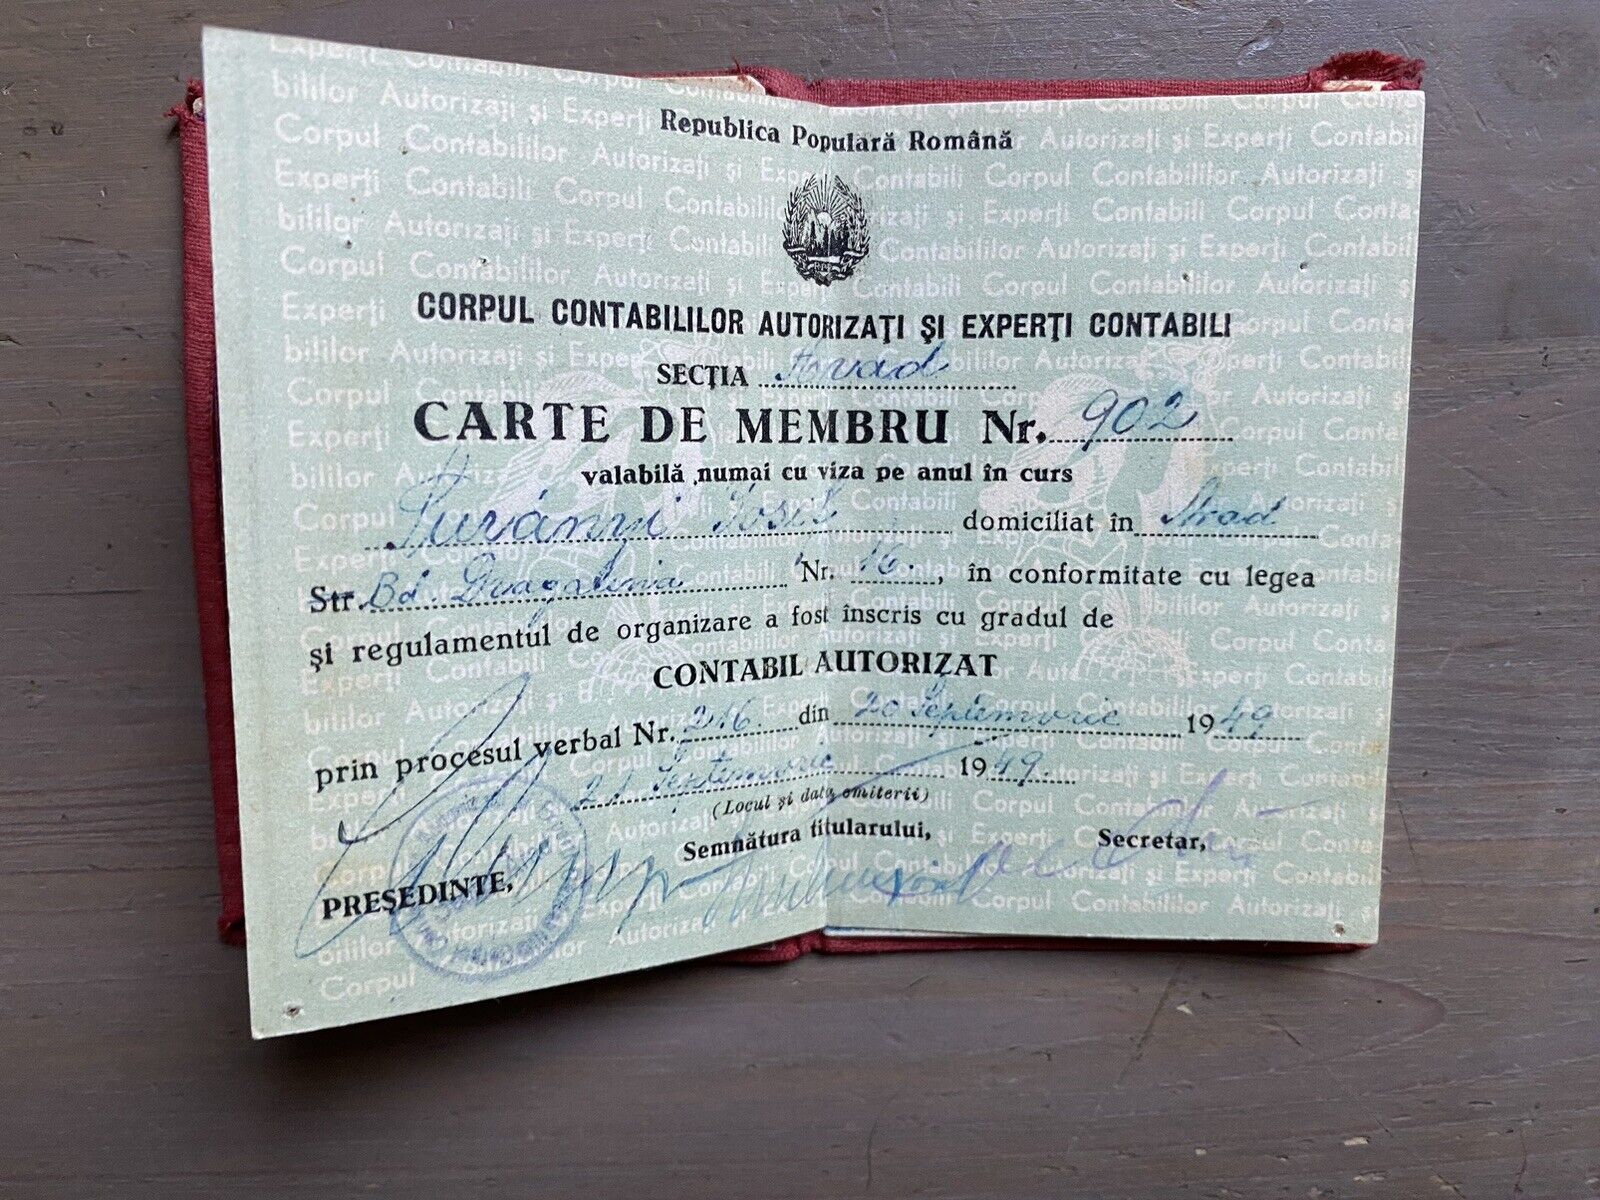 Republica Populară Română
CORPUL CONTABILILOR AUTORIZAȚI ȘI EXPERȚI CONTABILI
SECȚIA Arad
CARTE DE MEMBRU Nr. 902
valabilă numai cu viza pe anul în curs
Iosif domiciliat în Arad
Str. Bd. Dragalina Nr. 16., în conformitate cu legea
și regulamentul de organizare a fost înscris cu gradul de
CONTABIL AUTORIZAT
prin procesul verbal Nr. 216. din 20 Septemvrie 1949
21 Septemvrie 1949.
(Locul și data emiterii)
Semnătura titularului,
Secretar,
PREȘEDINTE,